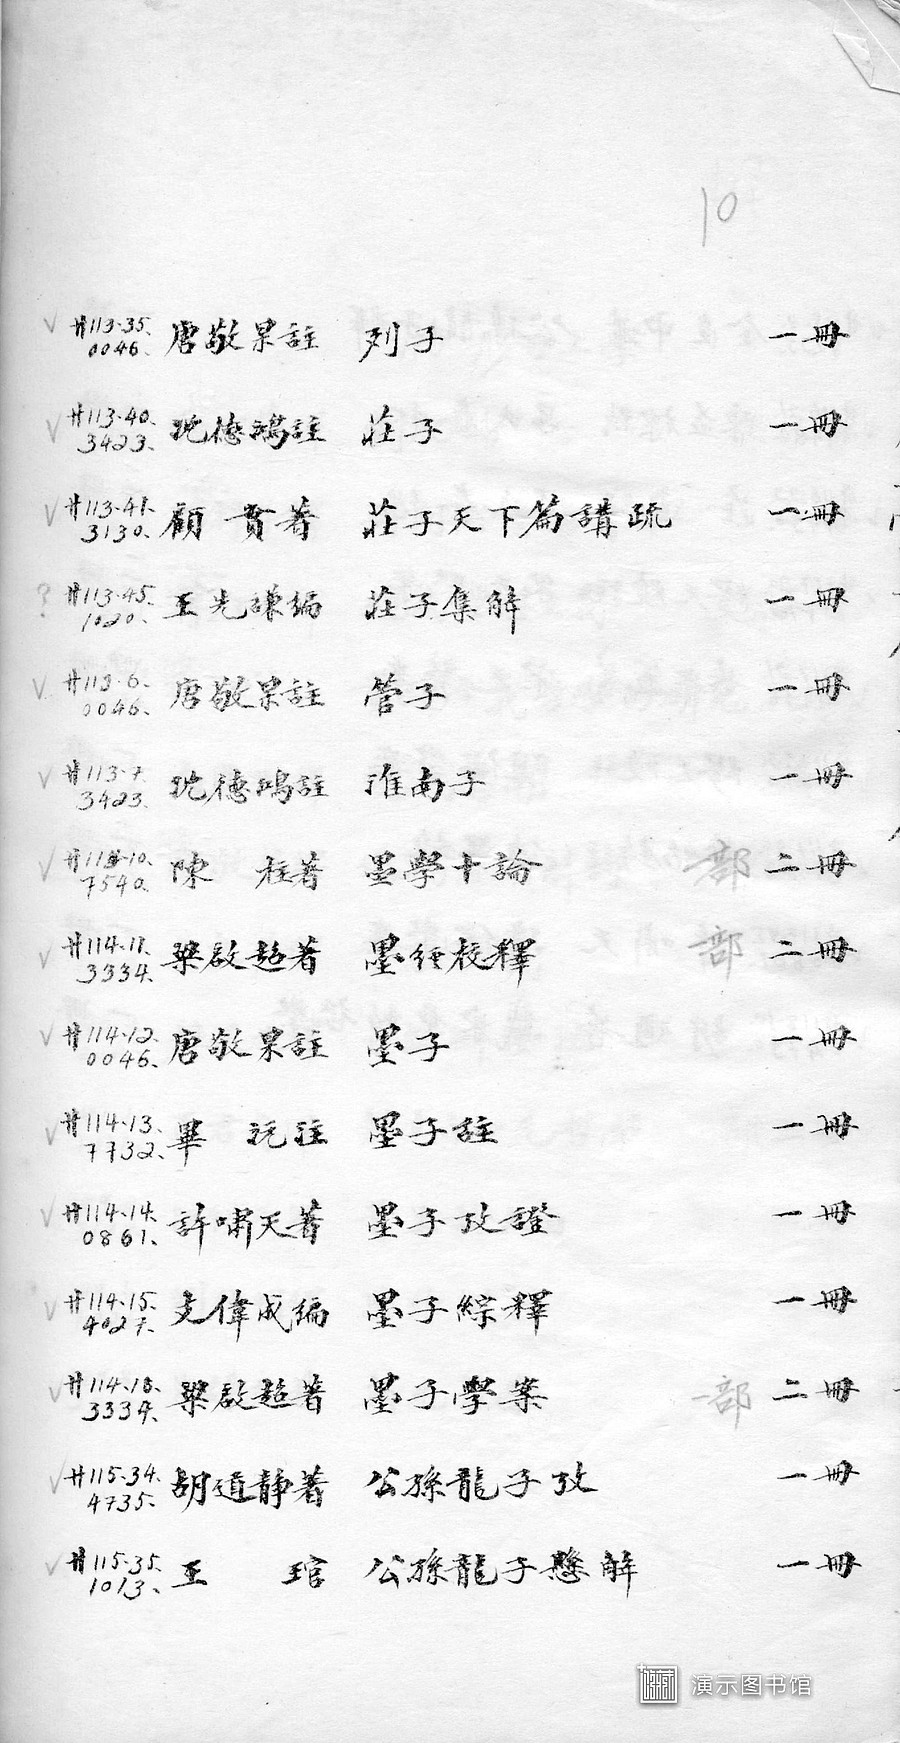 10
廿113·35. 唐敬杲註 列子 一冊
0046.
廿113·40. 沈德鴻註 莊子 一冊
3423.
廿113·41. 顧實著 莊子天下篇講疏 一冊
3130.
? 廿113·45. 王先謙編 莊子集解 一冊
1020.
廿113·6. 唐敬杲註 管子 一冊
0046.
廿113·7. 沈德鴻註 淮南子 一冊
3423.
陳柱著 墨學十論 一部 二冊
7540.
廿114·11. 梁啟超著 墨經校釋 一部 二冊
3334.
廿114·12. 唐敬杲註 墨子 一冊
0046.
廿114·13. 畢沅注 墨子註 一冊
7732.
廿114·14. 許嘯天著 墨子攷證 一冊
0861.
廿114·15. 支偉成編 墨子綜釋 一冊
4027.
廿114·18. 梁啟超著 墨子學案 一部 二冊
3334.
廿115·34. 胡道靜著 公孫龍子攷 一冊
4735.
廿115·35. 王琯 公孫龍子懸解 一冊
1013.
演示图书馆